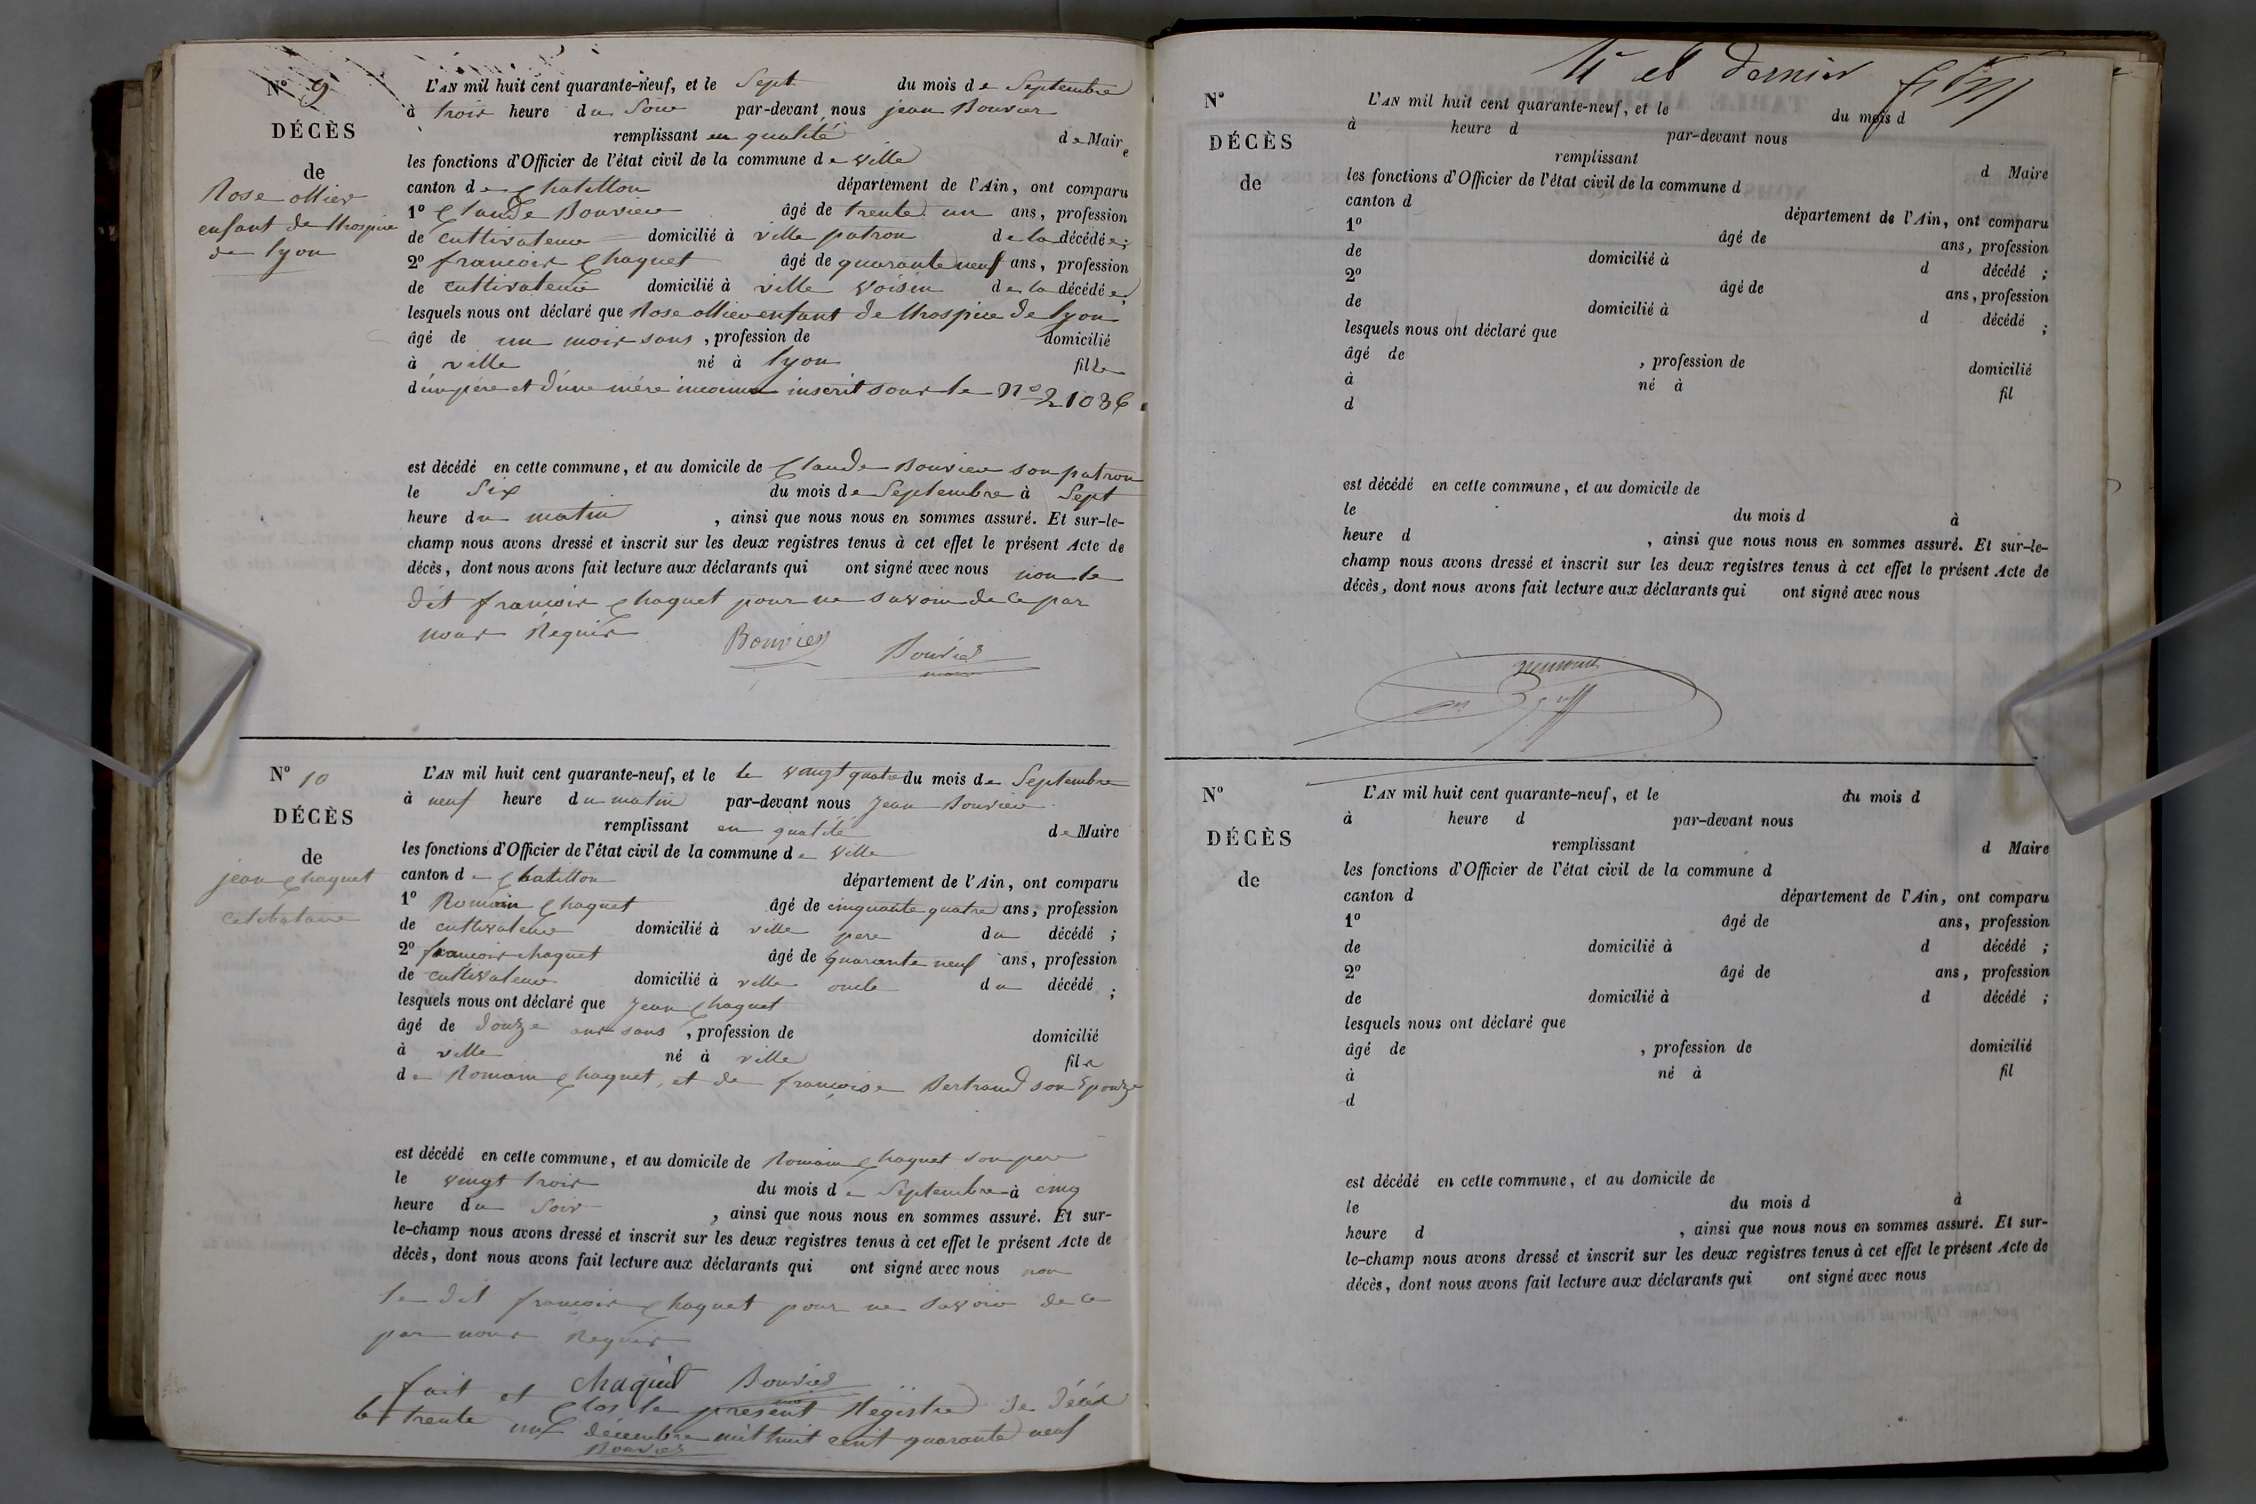 N° 9
DÉCÈS
de
Rose ollier
enfant de lhospice
de lyon
L'AN mil huit cent quarante-neuf, et le Sept du mois de Septembre
à trois heure du Soir par-devant nous jean Bouvier
remplissant en qualité de Maire
les fonctions d'Officier de l'état civil de la commune de ville
canton de Chatillon département de l'Ain, ont comparu
1° Claude Bouvier âgé de trente un ans, profession
de cultivateur domicilié à ville patron de la décédée;
2° francois Chaquet âgé de quarante neuf ans, profession
de cultivateur domicilié à ville voisin de la décédée;
lesquels nous ont déclaré que Rose ollier enfant de lhospice de lyon
âgé de un mois sans, profession de domicilié
à ville né à lyon fille
d'un père et d'une mère inconnu inscrit sous le N° 21036
est décédé en cette commune, et au domicile de Claude Bouvier son patron
le Six du mois de Septembre à Sept
heure du matin, ainsi que nous nous en sommes assuré. Et sur-le-
champ nous avons dressé et inscrit sur les deux registres tenus à cet effet le présent Acte de
décès, dont nous avons fait lecture aux déclarants qui ont signé avec nous non le
dit francois Chaquet pour ne savoir de ce par
nous Requis
Bouvier Bouvier
maire
N° 10
DÉCÈS
de
jean Chaquet
celibataire
L'AN mil huit cent quarante-neuf, et le le vingt quatre du mois de Septembre
à neuf heure du matin par-devant nous Jean Bouvier
remplissant en qualité de Maire
les fonctions d'Officier de l'état civil de la commune de ville
canton de Chatillon département de l'Ain, ont comparu
1° Romain Chaquet âgé de cinquante quatre ans, profession
de cultivateur domicilié à ville pere du décédé;
2° francois chaquet âgé de quarante neuf ans, profession
de cultivateur domicilié à ville oncle du décédé;
lesquels nous ont déclaré que Jean Chaquet
âgé de douze ans sans, profession de domicilié
à ville né à ville fils
de Romain Chaquet et de françoise Bertrand son Epouze
est décédé en cette commune, et au domicile de Romain Chaquet son pere
le vingt trois du mois de Septembre à cinq
heure du Soir, ainsi que nous nous en sommes assuré. Et sur-
le-champ nous avons dressé et inscrit sur les deux registres tenus à cet effet le présent Acte de
décès, dont nous avons fait lecture aux déclarants qui ont signé avec nous non
le dit francois Chaquet pour ne savoir de ce
par nous Requis
chaquet Bouvier
fait et Clos le présent Régistre de décés
le trente un décembre mil huit cent quarante neuf
Bouvier
et dernier
N°
DÉCÈS
de
L'AN mil huit cent quarante-neuf, et le du mois d
à heure d par-devant nous
remplissant d Maire
les fonctions d'Officier de l'état civil de la commune d
canton d département de l'Ain, ont comparu
1° âgé de ans, profession
de domicilié à d décédé;
2° âgé de ans, profession
de domicilié à d décédé;
lesquels nous ont déclaré que
âgé de, profession de domicilié
à né à fil
d
est décédé en cette commune, et au domicile de
le du mois d à
heure d, ainsi que nous nous en sommes assuré. Et sur-le-
champ nous avons dressé et inscrit sur les deux registres tenus à cet effet le présent Acte de
décès, dont nous avons fait lecture aux déclarants qui ont signé avec nous
N°
DÉCÈS
de
L'AN mil huit cent quarante-neuf, et le du mois d
à heure d par-devant nous
remplissant d Maire
les fonctions d'Officier de l'état civil de la commune d
canton d département de l'Ain, ont comparu
1° âgé de ans, profession
de domicilié à d décédé;
2° âgé de ans, profession
de domicilié à d décédé;
lesquels nous ont déclaré que
âgé de, profession de domicilié
à né à fil
d
est décédé en cette commune, et au domicile de
le du mois d à
heure d, ainsi que nous nous en sommes assuré. Et sur-
le-champ nous avons dressé et inscrit sur les deux registres tenus à cet effet le présent Acte de
décès, dont nous avons fait lecture aux déclarants qui ont signé avec nous